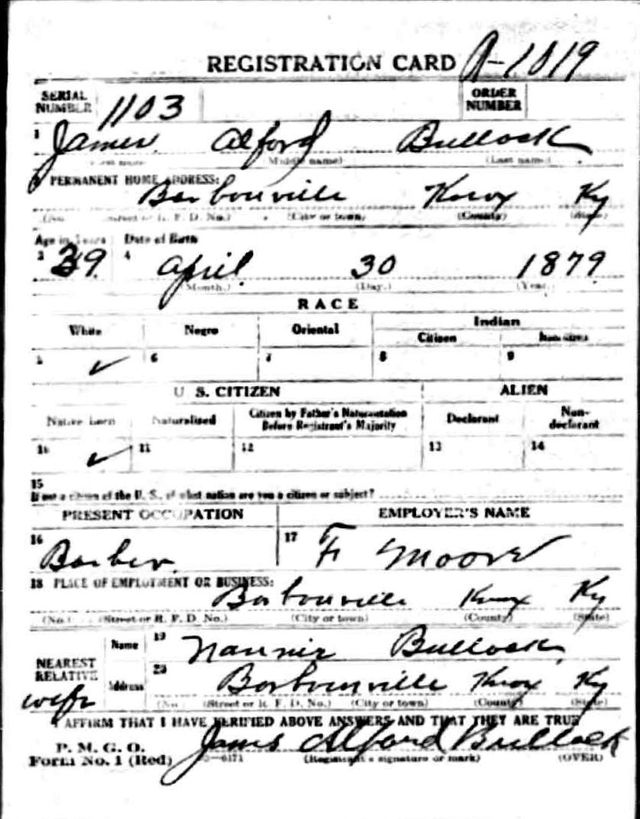 REGISTRATION CARD A-1019
SERIAL NUMBER 1103 ORDER NUMBER
1 James Alford Bullock
(Middle name) (Last name)
PERMANENT HOME ADDRESS:
Barbourville Knox Ky
(No.) (Street or R. F. D. No.) (City or town) (County) (State)
Age in Years Date of Birth
3 39 4 April 30 1879
(Month.) (Day.) (Year.)
RACE
White Negro Oriental Indian
Citizen
5 ✓ 6 7 8 9
U. S. CITIZEN ALIEN
Native Born Naturalized Citizen by Father's Naturalization Before Registrant's Majority Declarant Non-declarant
10 ✓ 11 12 13 14
15
If not a citizen of the U. S., of what nation are you a citizen or subject?
PRESENT OCCUPATION EMPLOYER'S NAME
16 Barber 17 F. Moore
18 PLACE OF EMPLOYMENT OR BUSINESS:
Barbourville Knox Ky
(No.) (Street or R. F. D. No.) (City or town) (County) (State)
NEAREST RELATIVE Name 19 Nannie Bullock
wife Address 20 Barbourville Knox Ky
(No.) (Street or R. F. D. No.) (City or town) (County) (State)
I AFFIRM THAT I HAVE VERIFIED ABOVE ANSWERS AND THAT THEY ARE TRUE
P. M. G. O.
Form No. 1 (Red) James Alford Bullock
(Registrant's signature or mark) (OVER)